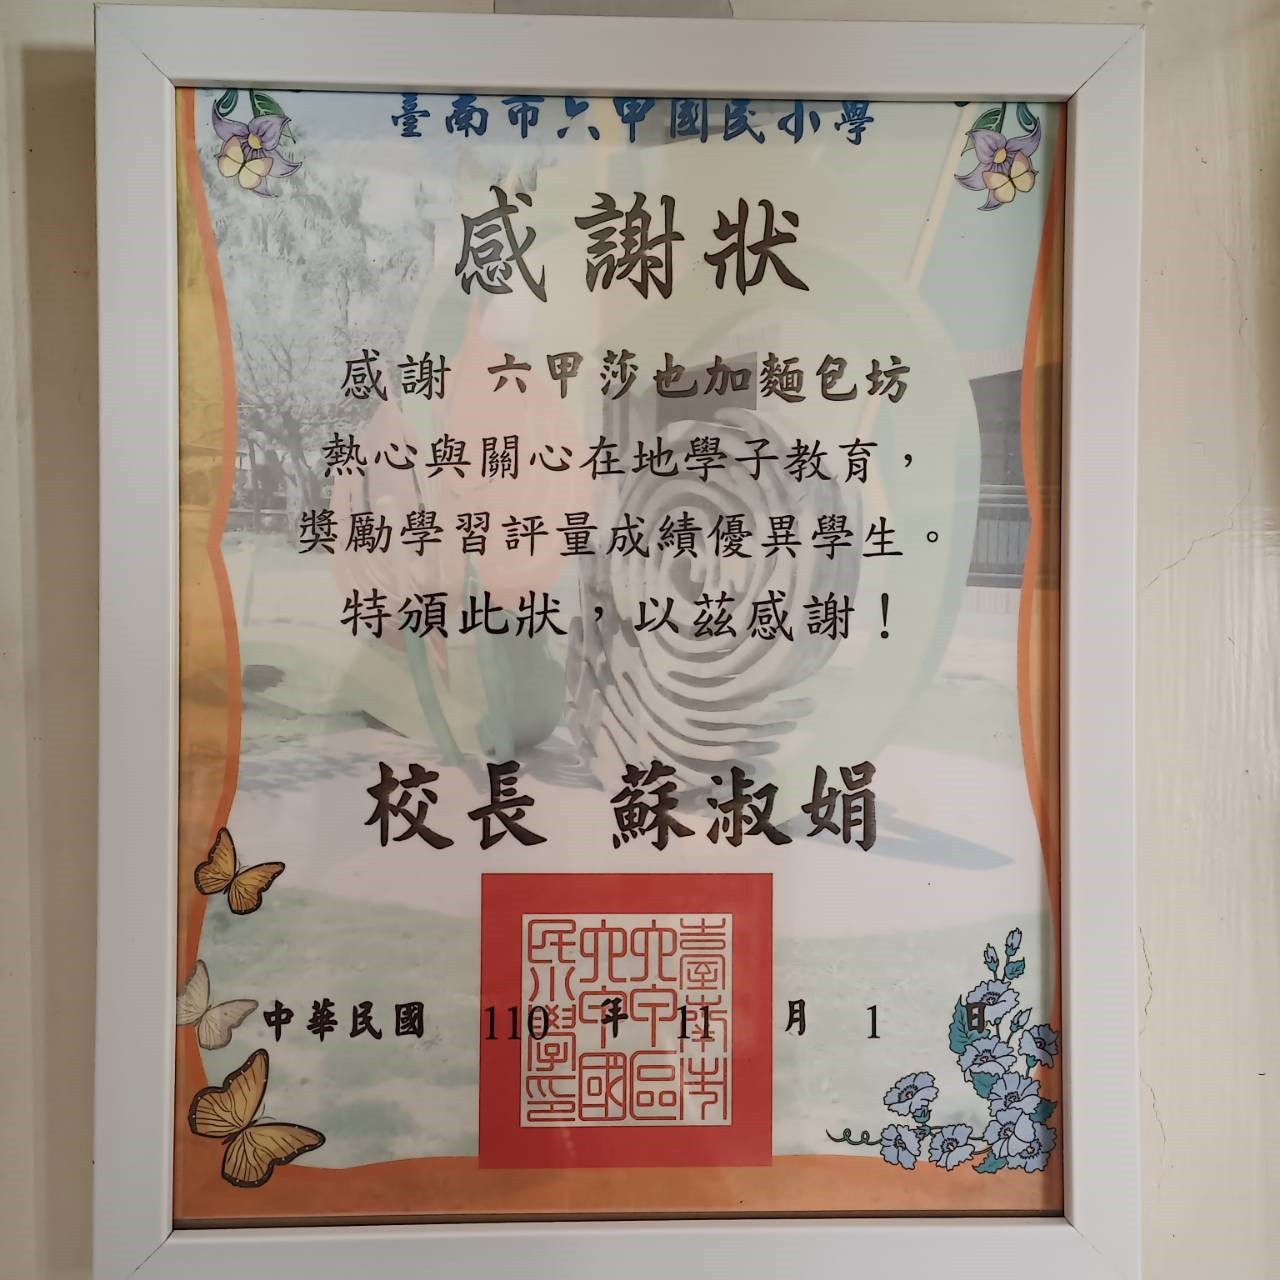 臺南市六甲國民小學
感謝狀
感謝 六甲莎也加麵包坊
熱心與關心在地學子教育，
獎勵學習評量成績優異學生。
特頒此狀，以茲感謝！
校長 蘇淑娟
臺南市
六甲區
六甲國
民小學印
中華民國 110 年 11 月 1 日